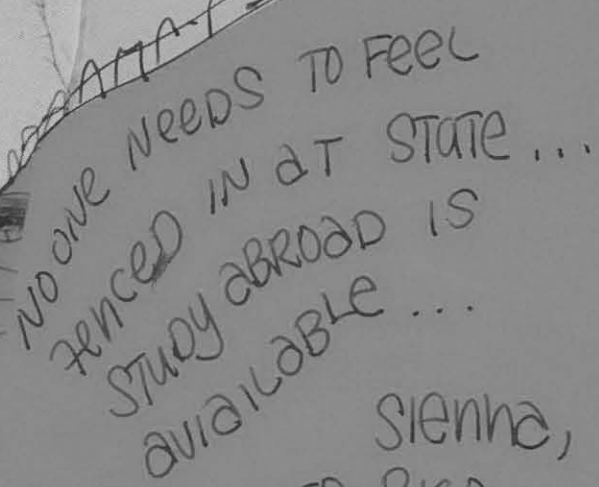 NO ONE NEEDS TO FEEL
FENCED IN AT STATE...
STUDY ABROAD IS
AVIAILABLE...
SIENNA,